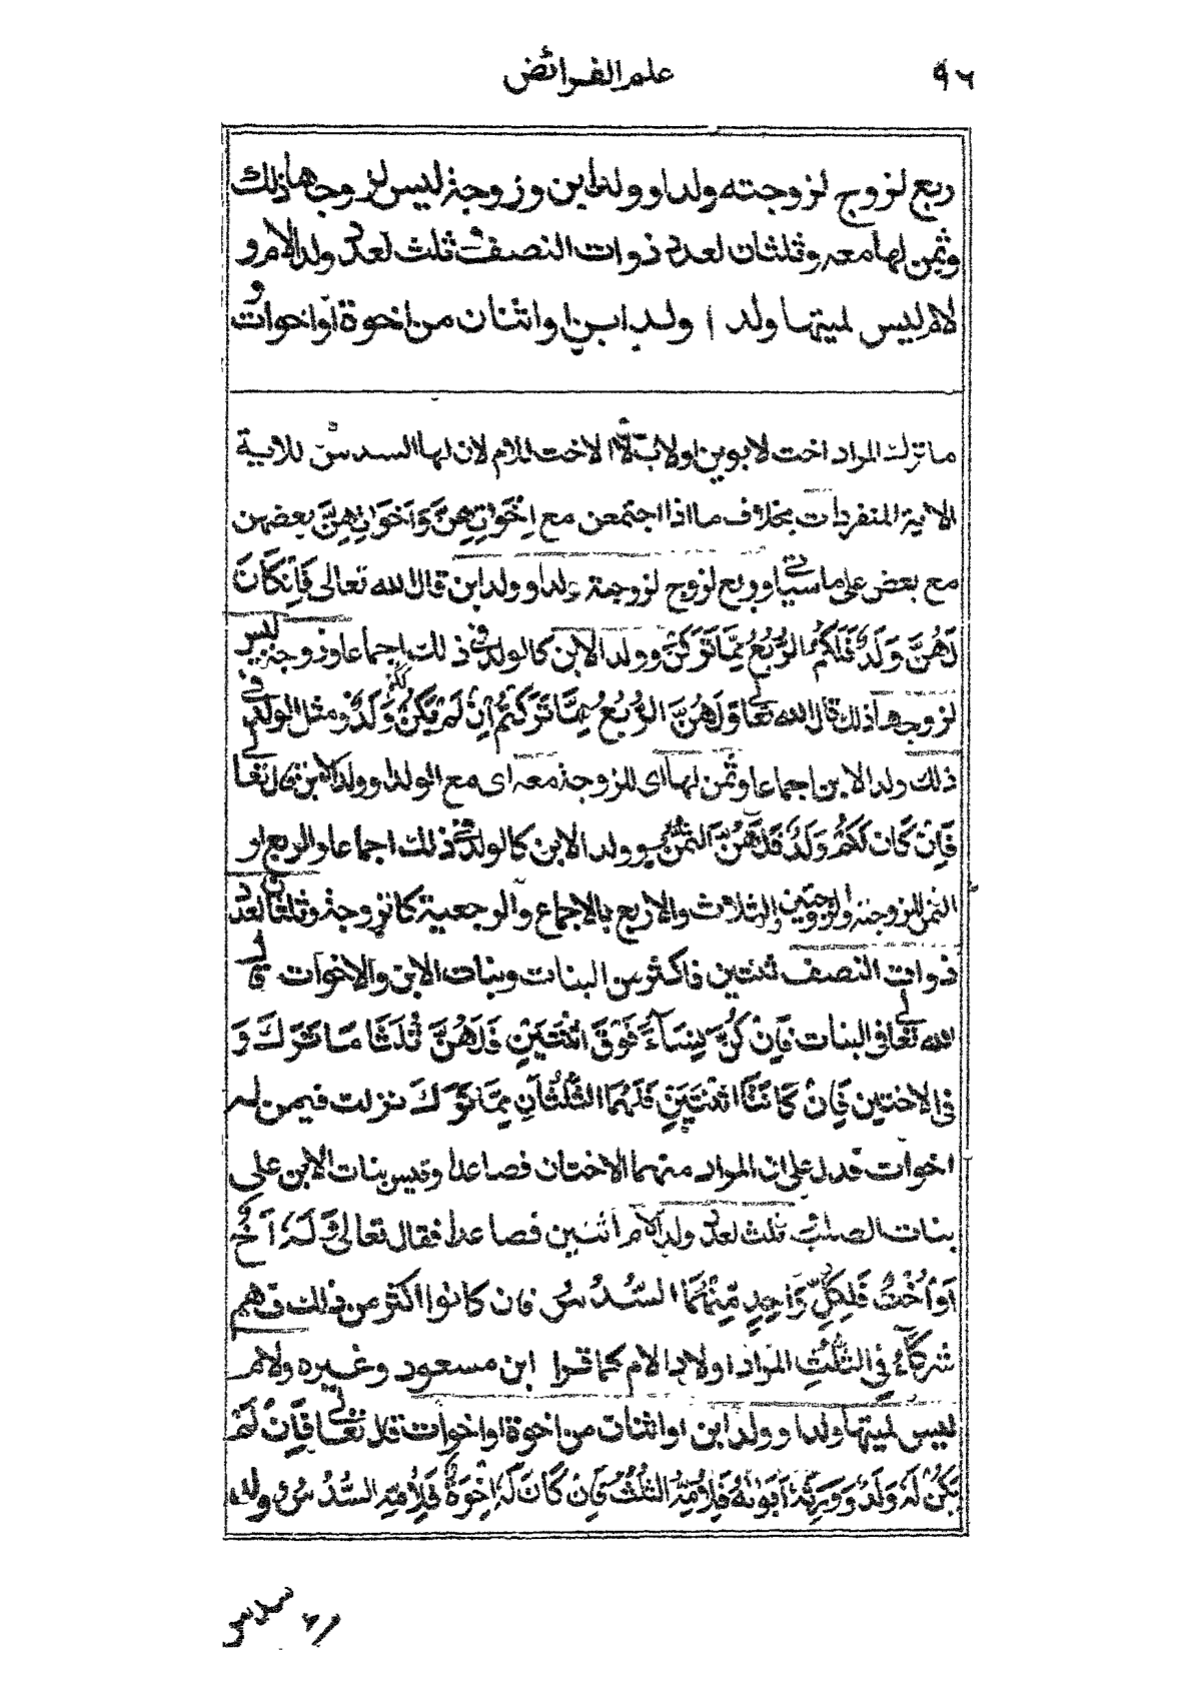 ٩٦ علم الفرائض
ربع لزوج لزوجته ولد او ولد ابن وزوجة ليس لزوجها ذلك
وثمن لها معه وثلثان لعدد ذوات النصف وثلث لعدد ولد الام و
لام ليس لميتها ولد او ولد ابن او اثنان من اخوة او اخوات و
ما ترك المراد اخت لابوين او لاب لا الاخت للام لان لها السدس للاية
الاتية المنفردات بخلاف ما اذا اجتمعن مع اِخْوَتِهِنَّ وَاَخَوَاتِهِنَّ بعضهن
مع بعض على ما سياتي وربع لزوج لزوجة ولد او ولد ابن قال الله تعالى فَاِنْ كَانَ
لَهُنَّ وَلَدٌ فَلَكُمُ الرُّبُعُ مِمَّا تَرَكْنَ وولد الابن كالولد في ذلك اجماعا وزوجة ليس
لزوجها ذلك قال الله تعالى وَلَهُنَّ الرُّبُعُ مِمَّا تَرَكْتُمْ اِنْ لَمْ يَكُنْ لَكُمْ وَلَدٌ ومثل الولد في
ذلك ولد الابن اجماعا وثمن لها اى للزوجة معه اى مع الولد او ولد الابن قال تعالى
فَاِنْ كَانَ لَكُمْ وَلَدٌ فَلَهُنَّ الثُّمُنُ وولد الابن كالولد في ذلك اجماعا والربع او
الثمن للزوجة والزوجتين والثلاث والاربع بالاجماع والرجعية كالزوجة وثلثان لعدد
ذوات النصف ثنتين فاكثر من البنات وبنات الابن والاخوات قال
الله تعالى في البنات فَاِنْ كُنَّ نِسَاءً فَوْقَ اثْنَتَيْنِ فَلَهُنَّ ثُلُثَا مَا تَرَكَ وَ
فى الاختين فَاِنْ كَانَتَا اثْنَتَيْنِ فَلَهُمَا الثُّلُثَانِ مِمَّا تَرَكَ نزلت فيمن له
اخوات فدل على ان المراد منهما الاختان فصاعدا وقيس بنات الابن على
بنات الصلب وثلث لعدد ولد الام اثنين فصاعدا فقال تعالى وَلَهُ اَخٌ
اَوْ اُخْتٌ فَلِكُلِّ وَاحِدٍ مِّنْهُمَا السُّدُسُ فان كانوا اكثر من ذلك فهم
شركَاءُ فِي الثُّلُثِ المراد اولاد الام كما قرا ابن مسعود وغيره ولام
ليس لميتها ولد او ولد ابن او اثنان من اخوة او اخوات قال تعالى فَاِنْ لَمْ
يَكُنْ لَهُ وَلَدٌ وَوَرِثَهُ اَبَوَاهُ فَلِاُمِّهِ الثُّلُثُ فَاِنْ كَانَ لَهُ اِخْوَةٌ فَلِاُمِّهِ السُّدُسُ وولد